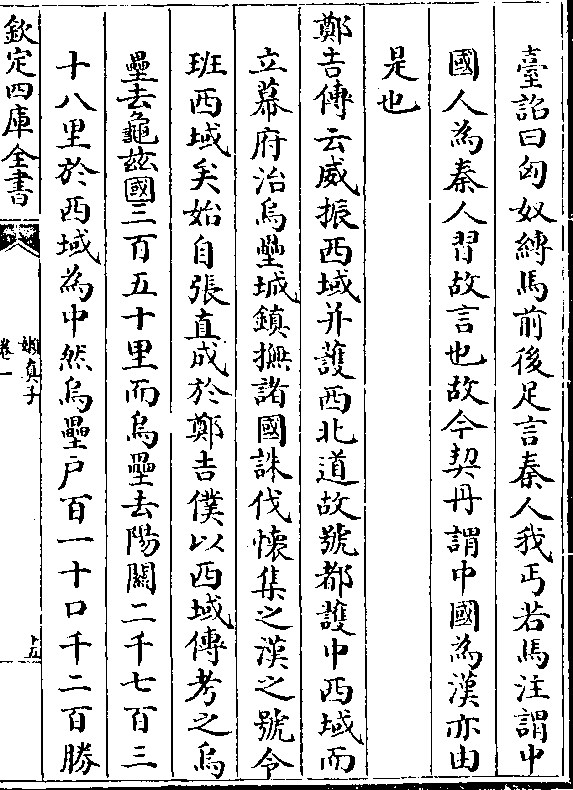 臺詔曰匈奴縛馬前後足言秦人我丐若馬注謂中
國人為秦人習故言也故今契丹謂中國為漢亦由
是也
鄭吉傳云威振西域并護西北道故號都護中西域而
立幕府治烏壘城鎮撫諸國誅伐懷集之漢之號令
班西域矣始自張直成於鄭吉僕以西域傳考之烏
壘去龜茲國三百五十里而烏壘去陽關二千七百三
十八里於西域為中然烏壘户百一十口千二百勝
欽定四庫全書
嬾真子
卷一